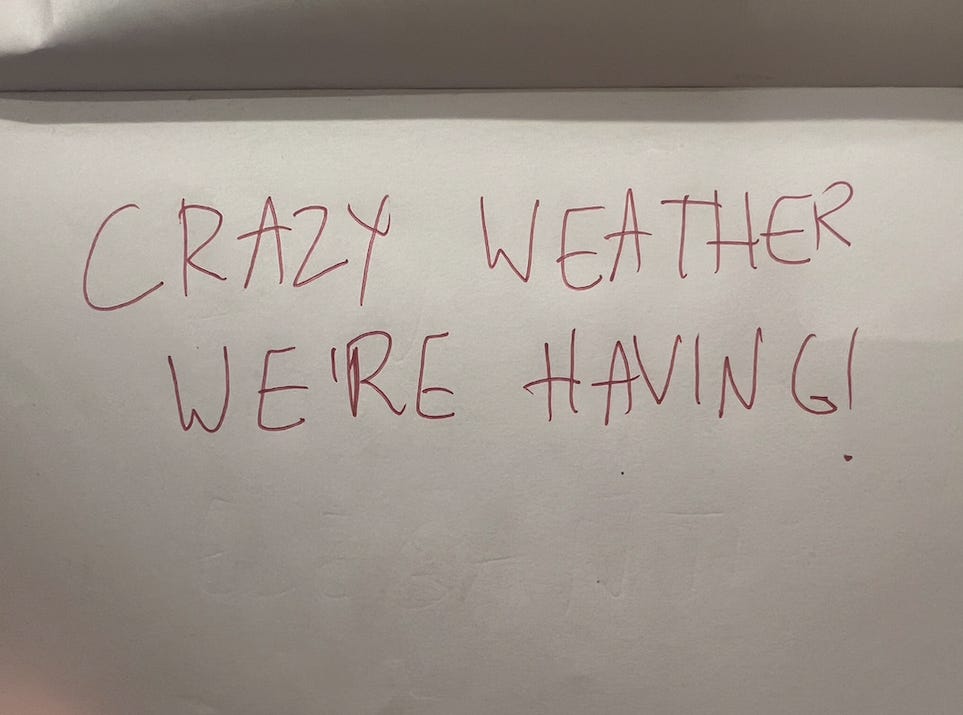 CRAZY WEATHER
WE'RE HAVING!